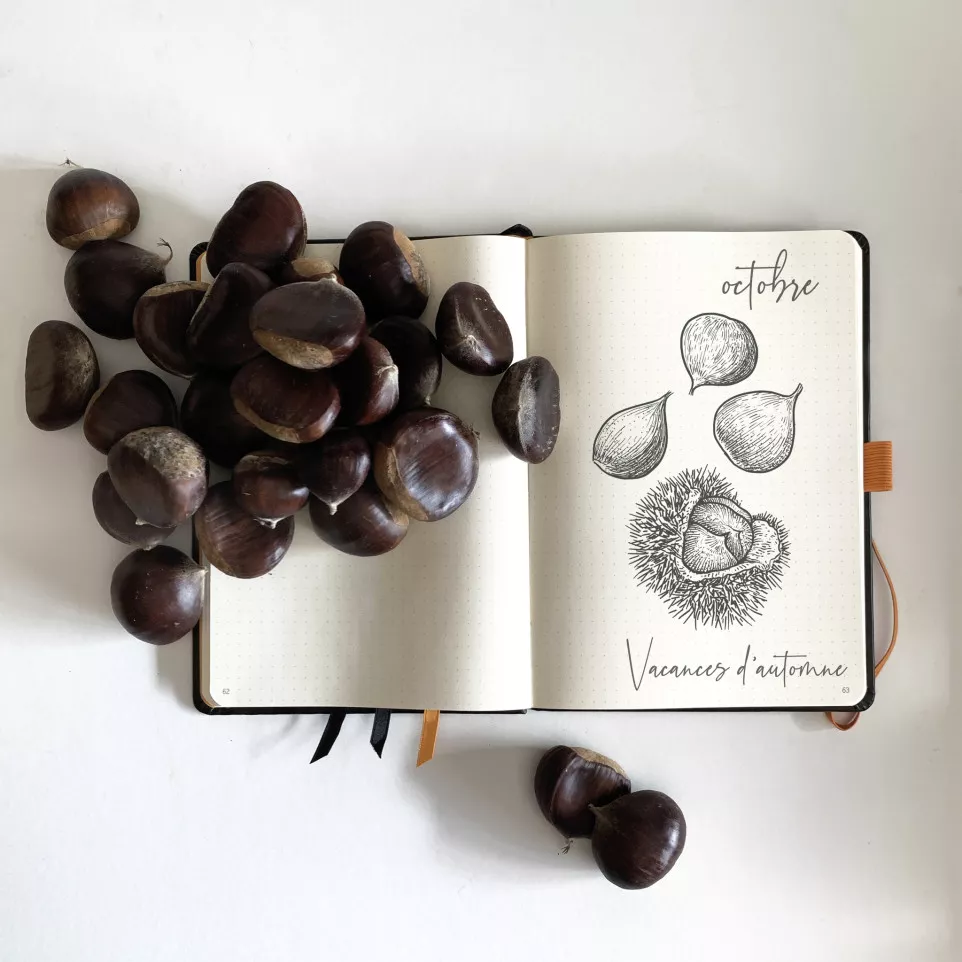 octobre
Vacances d'automne
62
63